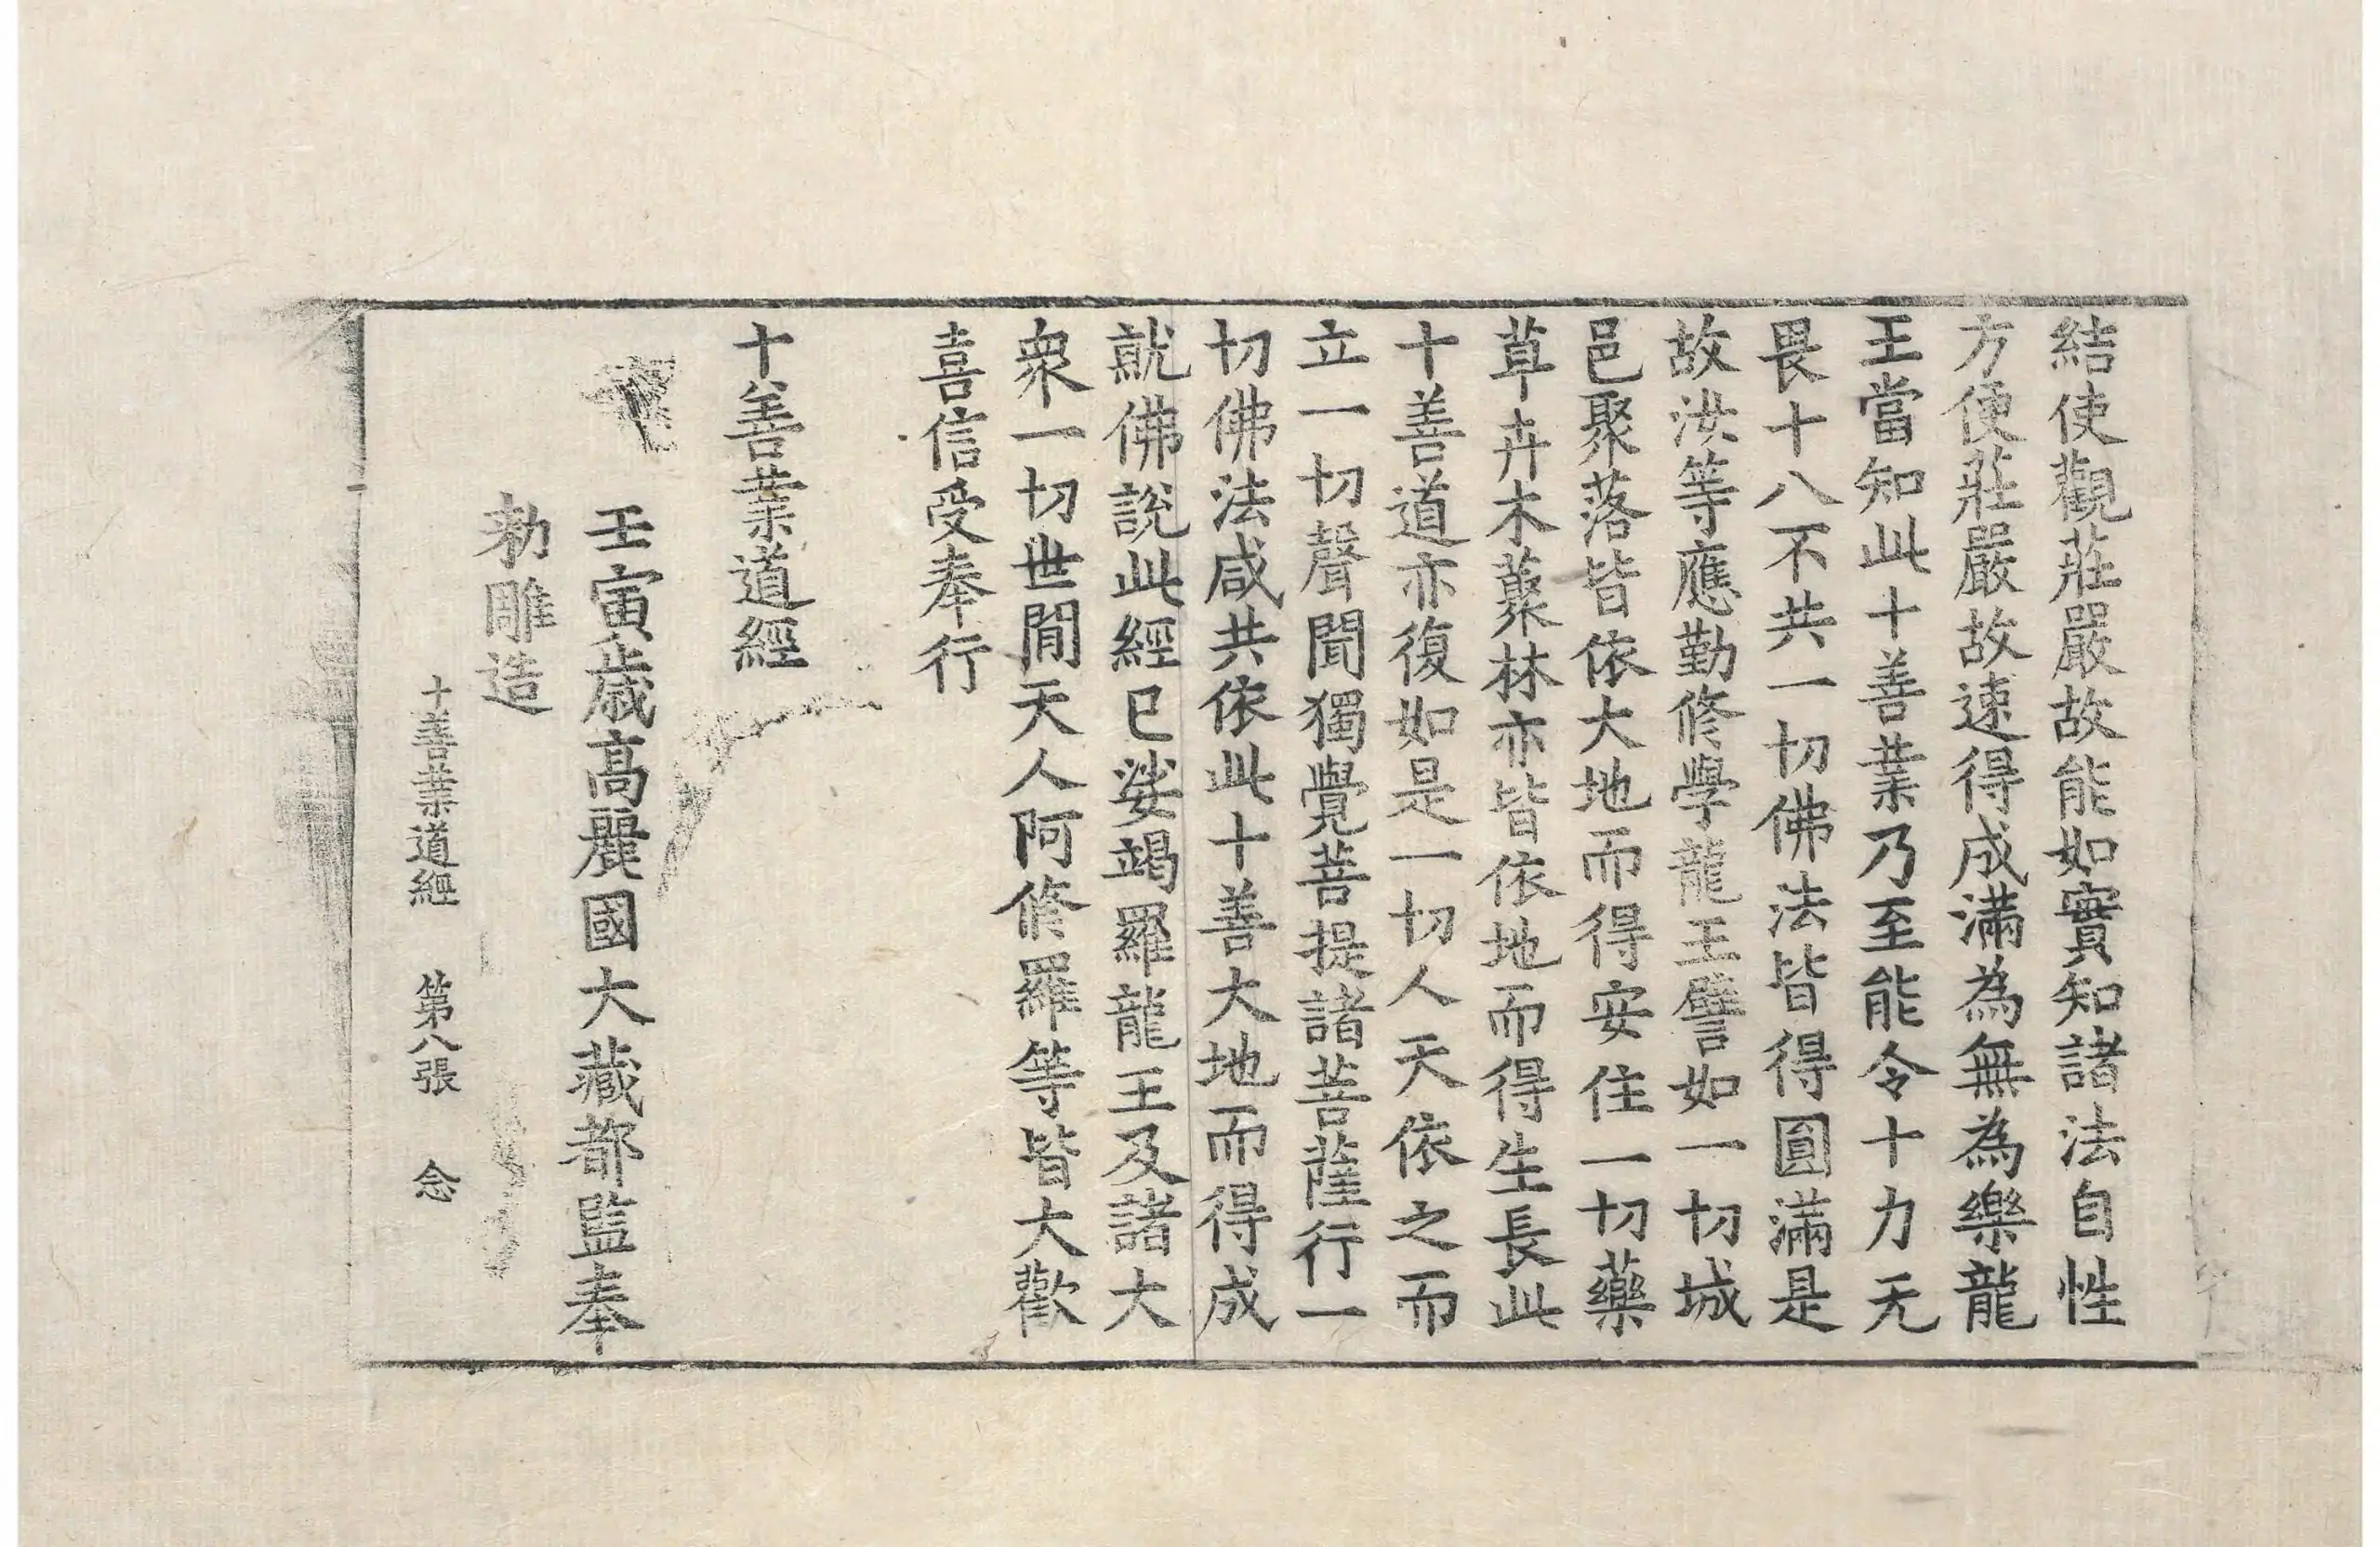 結使觀莊嚴故能如實知諸法自性
方便莊嚴故速得成滿為無為樂龍
王當知此十善業乃至能令十力无
畏十八不共一切佛法皆得圓滿是
故汝等應勤修學龍王譬如一切城
邑聚落皆依大地而得安住一切藥
草卉木藂林亦皆依地而得生長此
十善道亦復如是一切人天依之而
立一切聲聞獨覺菩提諸菩薩行一
切佛法咸共依此十善大地而得成
就佛說此經已娑竭羅龍王及諸大
衆一切世閒天人阿修羅等皆大歡
喜信受奉行
十善業道經
壬寅歲高麗國大藏都監奉
勅雕造
十善業道經 第八張 念